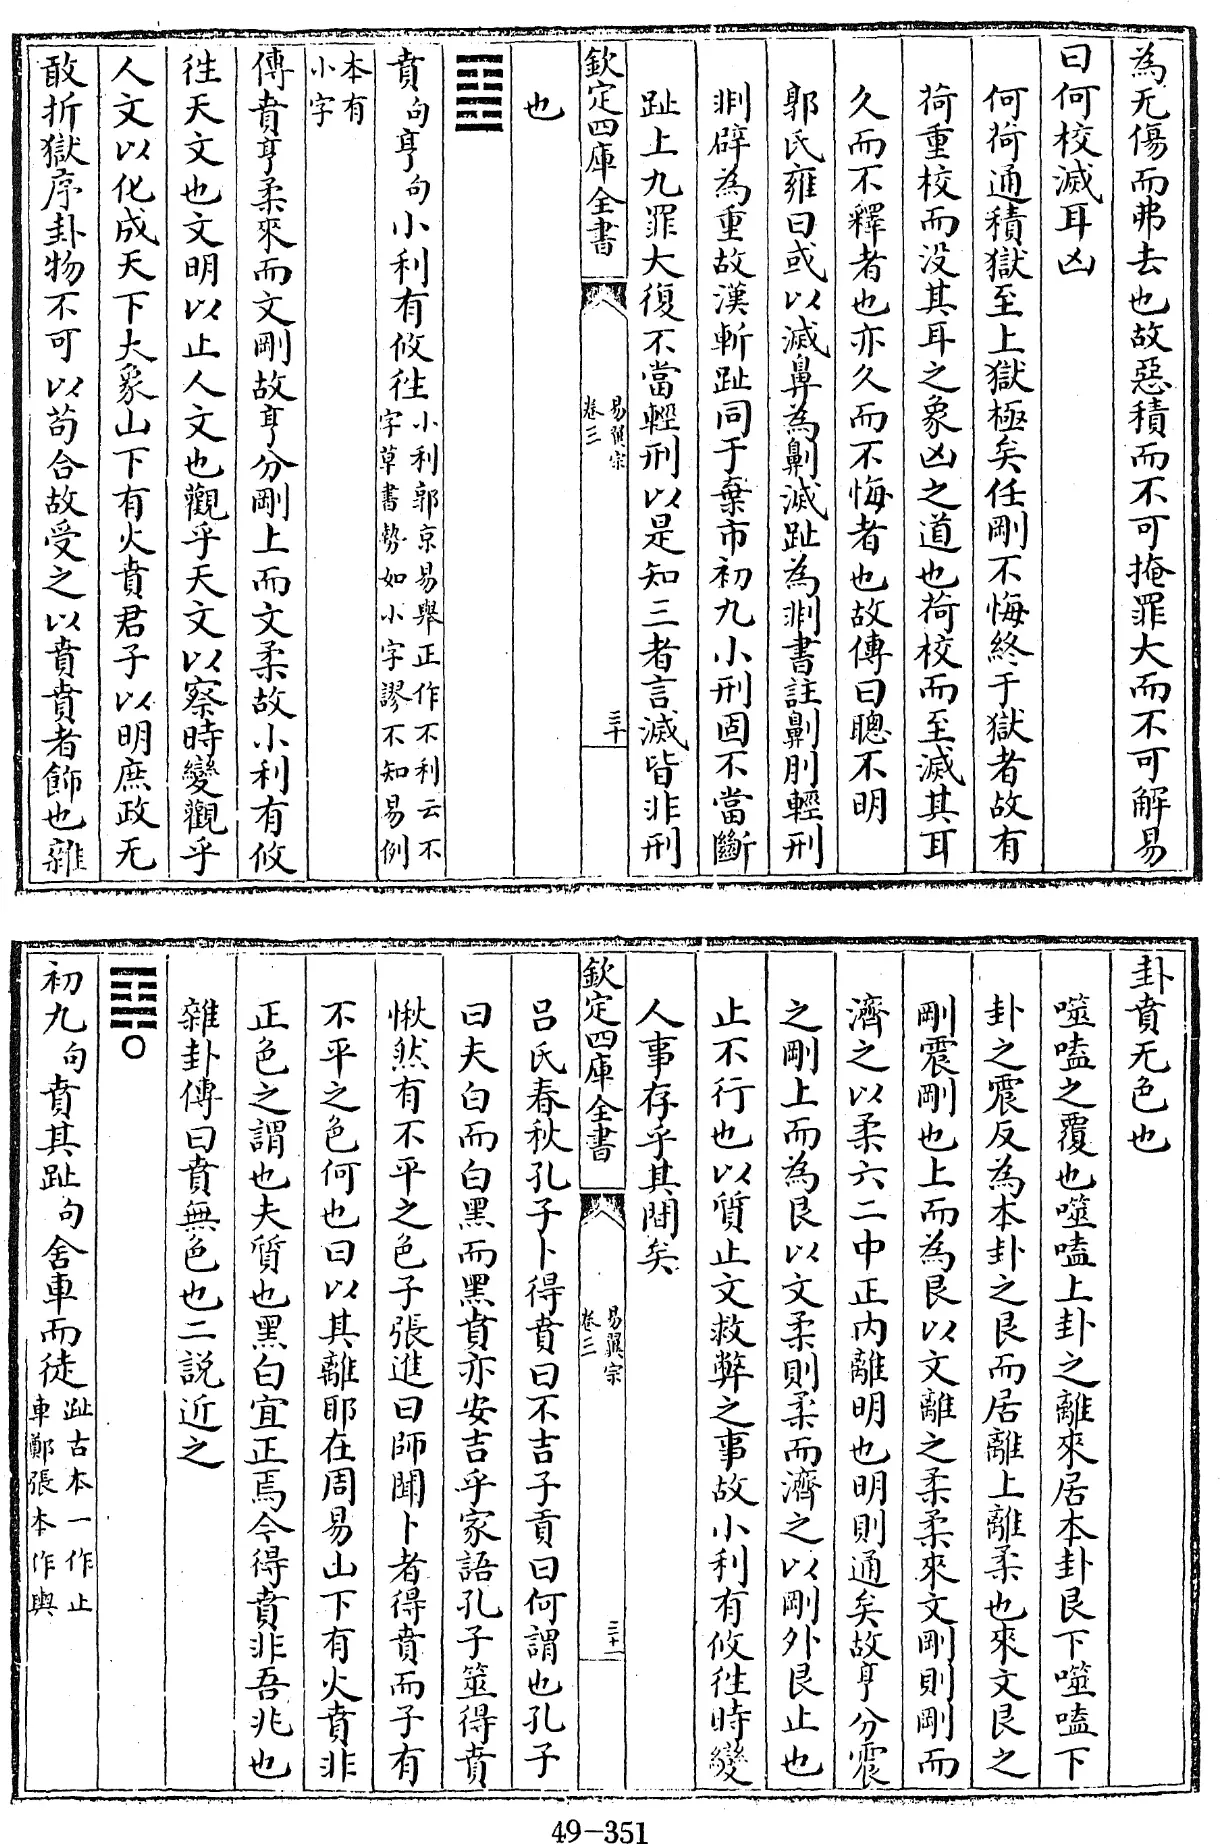 為无傷而弗去也故惡積而不可掩罪大而不可解易
曰何校滅耳凶
何荷通積獄至上獄極矣任剛不悔終于獄者故有
荷重校而没其耳之象凶之道也荷校而至滅其耳
久而不釋者也亦久而不悔者也故傳曰聰不明
郭氏雍曰或以滅鼻為劓滅趾為剕書註劓刖輕刑
剕辟為重故漢斬趾同于棄市初九小刑固不當斷
趾上九罪大復不當輕刑以是知三者言滅皆非刑
欽定四庫全書
易翼宗
卷三
三十
也
賁句亨句小利有攸徃
小利郭京易舉正作不利云不
字草書勢如小字謬不知易例
本有
小字
傳賁亨柔來而文剛故亨分剛上而文柔故小利有攸
徃天文也文明以止人文也觀乎天文以察時變觀乎
人文以化成天下大象山下有火賁君子以明庶政无
敢折獄序卦物不可以茍合故受之以賁賁者飾也雜
卦賁无色也
噬嗑之覆也噬嗑上卦之離來居本卦艮下噬嗑下
卦之震反為本卦之艮而居離上離柔也來文艮之
剛震剛也上而為艮以文離之柔柔來文剛則剛而
濟之以柔六二中正内離明也明則通矣故亨分震
之剛上而為艮以文柔則柔而濟之以剛外艮止也
止不行也以質止文救弊之事故小利有攸徃時變
人事存乎其間矣
欽定四庫全書
易翼宗
卷三
三十一
吕氏春秋孔子卜得賁曰不吉子貢曰何謂也孔子
曰夫白而白黑而黑賁亦安吉乎家語孔子筮得賁
愀然有不平之色子張進曰師聞卜者得賁而子有
不平之色何也曰以其離耶在周易山下有火賁非
正色之謂也夫質也黑白宜正焉今得賁非吾兆也
雜卦傳曰賁無色也二説近之
初九句賁其趾句舍車而徒
趾古本一作止
車鄭張本作輿
49-351